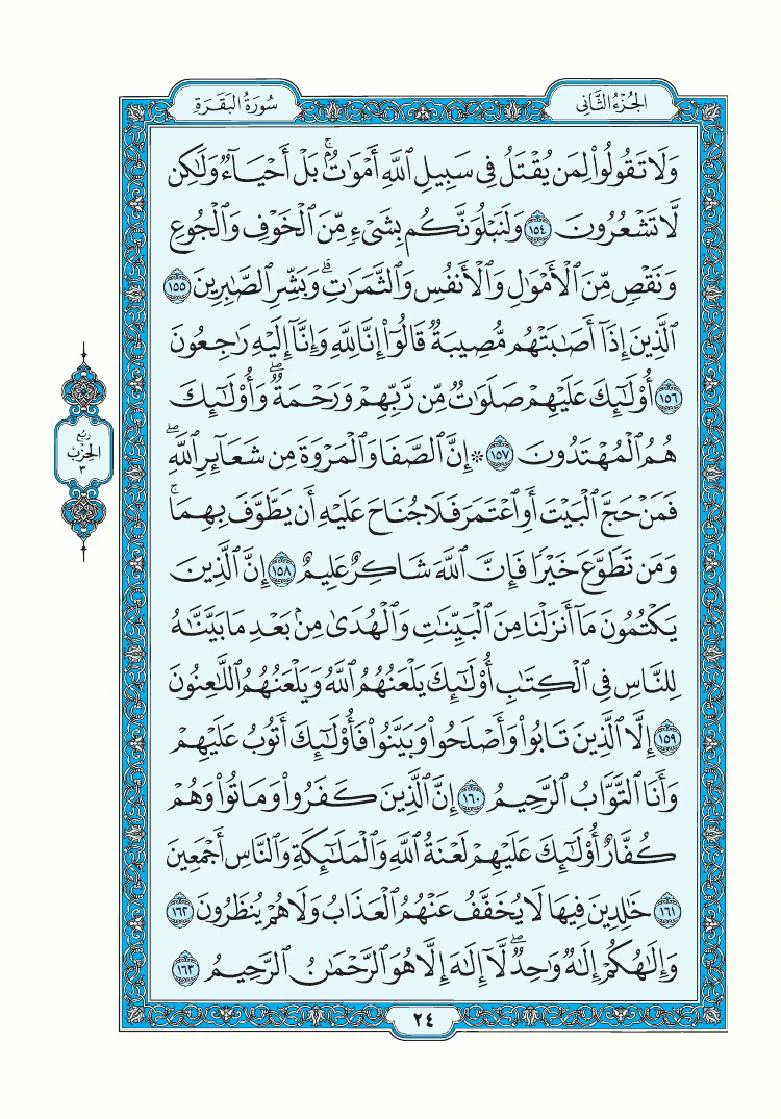 الجُزْءُ الثَّانِي
سُورَةُ البَقَرَةِ
وَلَا تَقُولُوا۟ لِمَن يُقْتَلُ فِى سَبِيلِ ٱللَّهِ أَمْوَٰتٌۢ ۚ بَلْ أَحْيَآءٌ وَلَٰكِن
لَّا تَشْعُرُونَ ١٥٤ وَلَنَبْلُوَنَّكُم بِشَىْءٍ مِّنَ ٱلْخَوْفِ وَٱلْجُوعِ
وَنَقْصٍ مِّنَ ٱلْأَمْوَٰلِ وَٱلْأَنفُسِ وَٱلثَّمَرَٰتِ ۗ وَبَشِّرِ ٱلصَّٰبِرِينَ ١٥٥
ٱلَّذِينَ إِذَآ أَصَٰبَتْهُم مُّصِيبَةٌ قَالُوٓا۟ إِنَّا لِلَّهِ وَإِنَّآ إِلَيْهِ رَٰجِعُونَ
١٥٦ أُو۟لَٰٓئِكَ عَلَيْهِمْ صَلَوَٰتٌ مِّن رَّبِّهِمْ وَرَحْمَةٌ ۖ وَأُو۟لَٰٓئِكَ
هُمُ ٱلْمُهْتَدُونَ ١٥٧ ۞ إِنَّ ٱلصَّفَا وَٱلْمَرْوَةَ مِن شَعَآئِرِ ٱللَّهِ ۖ
فَمَنْ حَجَّ ٱلْبَيْتَ أَوِ ٱعْتَمَرَ فَلَا جُنَاحَ عَلَيْهِ أَن يَطَّوَّفَ بِهِمَا ۚ
وَمَن تَطَوَّعَ خَيْرًا فَإِنَّ ٱللَّهَ شَاكِرٌ عَلِيمٌ ١٥٨ إِنَّ ٱلَّذِينَ
يَكْتُمُونَ مَآ أَنزَلْنَا مِنَ ٱلْبَيِّنَٰتِ وَٱلْهُدَىٰ مِنۢ بَعْدِ مَا بَيَّنَّٰهُ
لِلنَّاسِ فِى ٱلْكِتَٰبِ أُو۟لَٰٓئِكَ يَلْعَنُهُمُ ٱللَّهُ وَيَلْعَنُهُمُ ٱللَّٰعِنُونَ
١٥٩ إِلَّا ٱلَّذِينَ تَابُوا۟ وَأَصْلَحُوا۟ وَبَيَّنُوا۟ فَأُو۟لَٰٓئِكَ أَتُوبُ عَلَيْهِمْ
وَأَنَا ٱلتَّوَّابُ ٱلرَّحِيمُ ١٦٠ إِنَّ ٱلَّذِينَ كَفَرُوا۟ وَمَاتُوا۟ وَهُمْ
كُفَّارٌ أُو۟لَٰٓئِكَ عَلَيْهِمْ لَعْنَةُ ٱللَّهِ وَٱلْمَلَٰٓئِكَةِ وَٱلنَّاسِ أَجْمَعِينَ
١٦١ خَٰلِدِينَ فِيهَا لَا يُخَفَّفُ عَنْهُمُ ٱلْعَذَابُ وَلَا هُمْ يُنظَرُونَ ١٦٢
وَإِلَٰهُكُمْ إِلَٰهٌ وَٰحِدٌ ۖ لَّآ إِلَٰهَ إِلَّا هُوَ ٱلرَّحْمَٰنُ ٱلرَّحِيمُ ١٦٣
ربع
الحزب
٣
٢٤